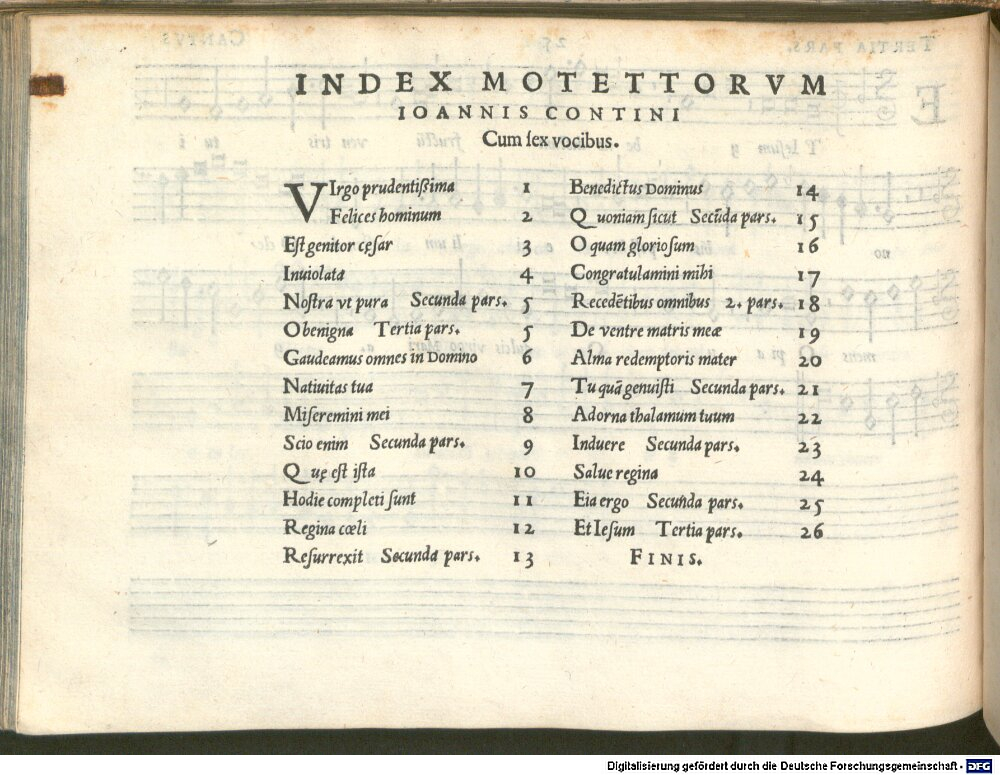 INDEX MOTETTORVM
IOANNIS CONTINI
Cum ſex vocibus.
VIrgo prudentiſsima 1
Felices hominum 2
Eſt genitor cęſar 3
Inuiolata 4
Noſtra vt pura Secunda pars. 5
O benigna Tertia pars. 5
Gaudeamus omnes in Domino 6
Natiuitas tua 7
Miſeremini mei 8
Scio enim Secunda pars. 9
Quę eſt iſta 10
Hodie completi ſunt 11
Regina cœli 12
Reſurrexit Secunda pars. 13
Benedictus Dominus 14
Quoniam ſicut Secūda pars. 15
O quam glorioſum 16
Congratulamini mihi 17
Recedētibus omnibus 2. pars. 18
De ventre matris meæ 19
Alma redemptoris mater 20
Tu quā genuiſti Secunda pars. 21
Adorna thalamum tuum 22
Induere Secunda pars. 23
Salue regina 24
Eia ergo Secunda pars. 25
Et Ieſum Tertia pars. 26
FINIS.
Digitalisierung gefördert durch die Deutsche Forschungsgemeinschaft - DFG